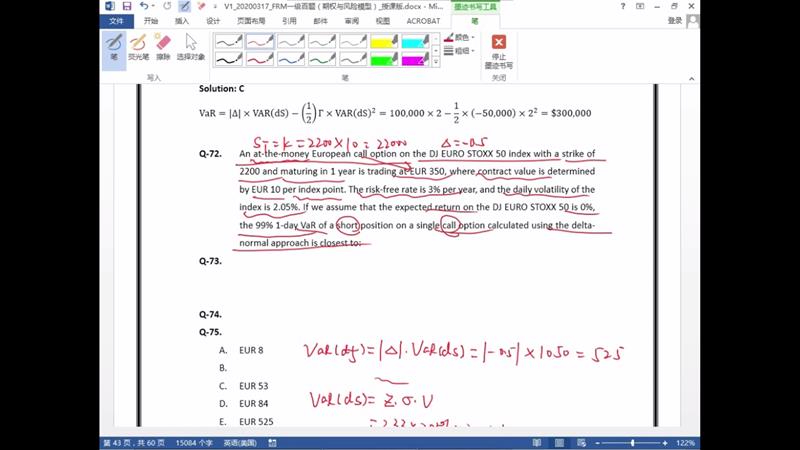 V1_20200317_FRM一级百题（期权与风险模型）_授课版.docx - Mi...
墨迹书写工具
文件
开始
插入
设计
页面布局
引用
邮件
审阅
视图
ACROBAT
笔
登录
笔
荧光笔
擦除
选择对象
颜色
粗细
停止
墨迹书写
写入
笔
关闭
Solution: C
VaR = |Δ| × VAR(dS) − (1/2) Γ × VAR(dS)² = 100,000 × 2 − 1/2 × (−50,000) × 2² = $300,000
S_T = K = 2200 × 10 = 22000 Δ = -0.5
Q-72. An at-the-money European call option on the DJ EURO STOXX 50 index with a strike of
2200 and maturing in 1 year is trading at EUR 350, where contract value is determined
by EUR 10 per index point. The risk-free rate is 3% per year, and the daily volatility of the
index is 2.05%. If we assume that the expected return on the DJ EURO STOXX 50 is 0%,
the 99% 1-day VaR of a short position on a single call option calculated using the delta-
normal approach is closest to:
Q-73.
Q-74.
Q-75.
A. EUR 8
VaR(df) = |Δ| · VaR(ds) = |-0.5| × 1050 = 525
B.
C. EUR 53
D. EUR 84
VaR(ds) = Z · σ · V
E. EUR 525
第 43 页，共 60 页
15084 个字
英语(美国)
122%